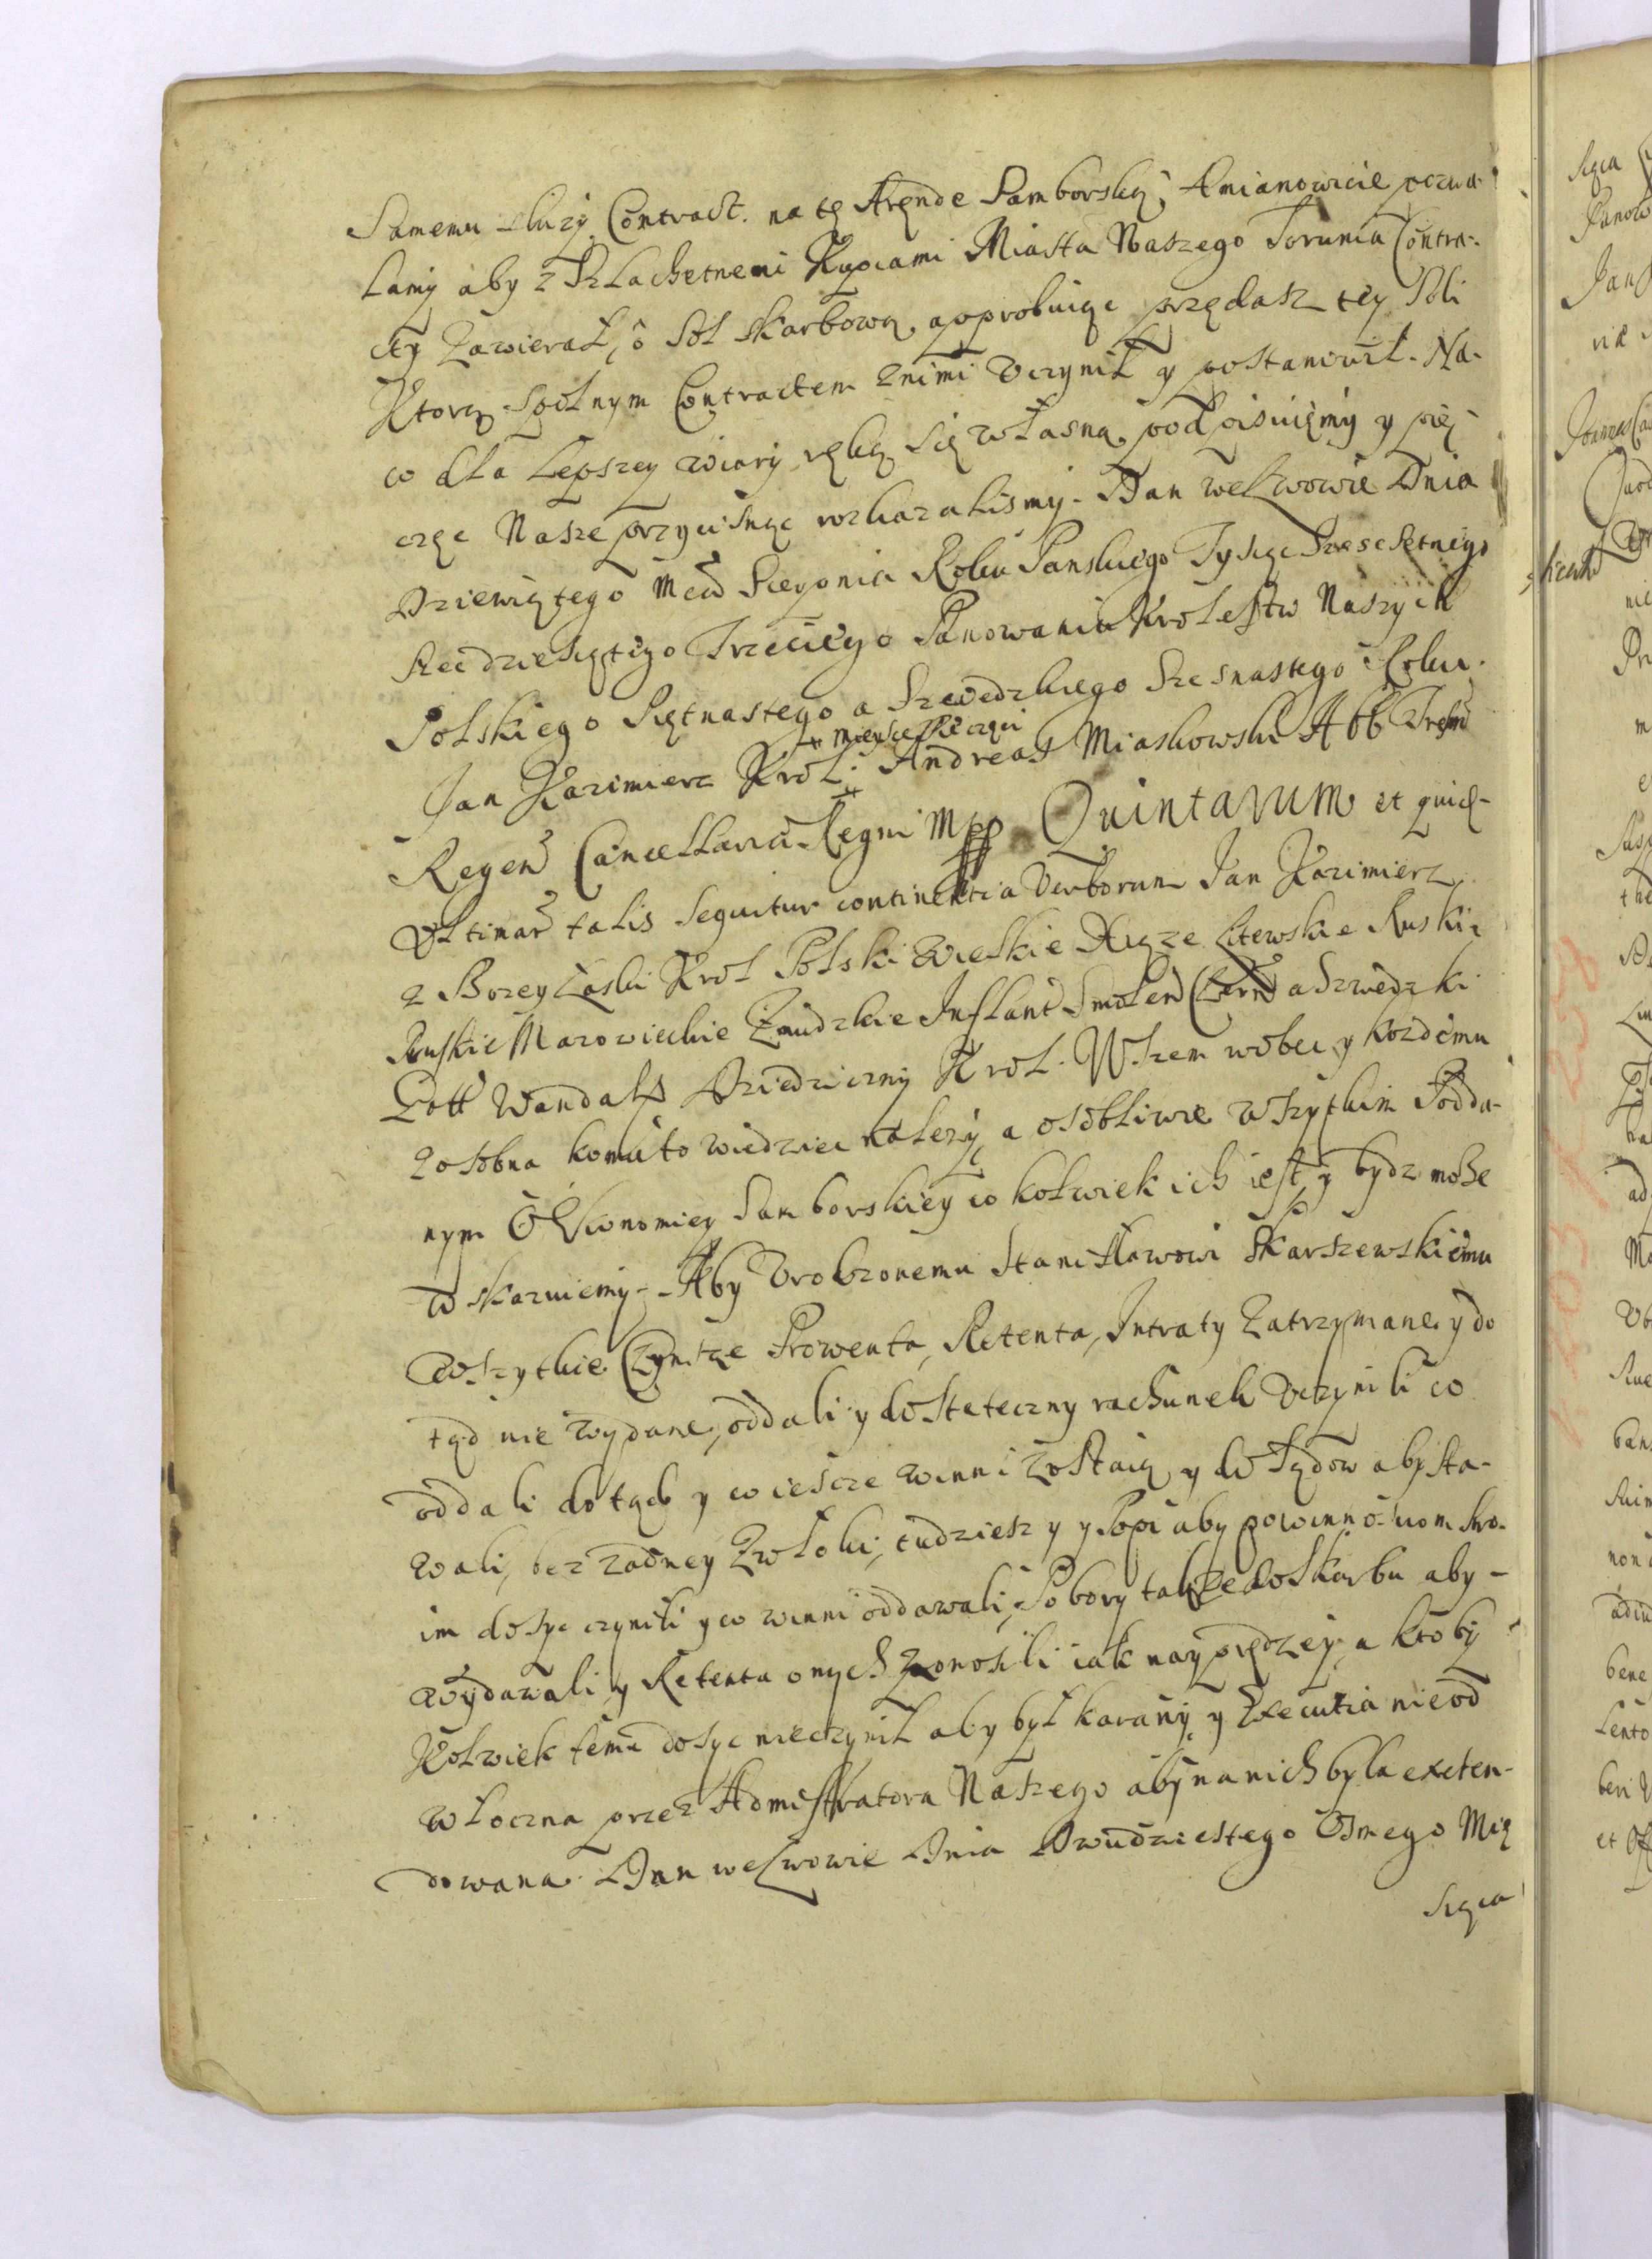 Samemu służy Contract. na tę Arendę Samborską, Amianowicie pozwa-
lamy aby z Szlachetnemi Kupcami Miasta Naszego Torunia Contra-
cty zawierał, o Sol Skarbową, approbuiąc przedasz tey Soli
Ktorą spolnym Contractem znimi uczynił y postanowił. Na
co dla Lepszey wiary ręką się własną podpisuiemy y pie-
częc Nasze przycisnąc roskazalismy. Dan weLwowie Dnia
Dziewiątego Mca Sierpnia Roku Panskiego Tysiąc Szescsetnego
Szescdziesiątego Trzeciego Panowania Krolestw Naszych
Polskiego Piętnastego a Szwedzkiego Szesnastego Roku.
Jan Kazimierz Krol. Andreas Miaskowski Abb Trem
+ mieysce Pieczęci
Regen Cancellaria Regni Mpp Quintarum et quid-
Ultimar talis sequitur continentia Verborum Jan Kazimierz
z Bozey Łaski Krol Polski Wielkie Xiąze Litewskie Ruskie
Pruskie Mazowieckie Zmudzkie Inflant Smolen Czern a Szwedzki
Gott Wandals Dziedziczny Krol. Wszem wobec y kozdemu
zosobna komu to wiedziec nalezy, a osobliwie wszytkim Podda-
nym Oekonomiey Samborskiey co kolwiek ich iest y bydz może
w skazuiemy. Aby Urodzonemu Stanisławowi Skarszewskiemu
wszytkie Czynsze Prowenta, Retenta, Intraty Zatrzymane y do
tąd nie wydane, oddali y dostateczny rachunek Uczynili co
oddali dotąd y co ieszcze winni zostaią y do Sądow aby sta-
wali, bez zadney Zwłoki, tudziesz y Popi aby powinnosciom swo-
im dosyc czynili y co winni oddawali, Pobory takze do Skarbu aby-
wydawali, y Retenta onych znosili iak nayprędzey, a ktoby
Kolwiek temu dosyc nieczynił aby był karany, y Executia nieod
włoczna przez Admistratora Naszego aby na nich była exeten-
dowana. Dan weLwowie Dnia Dwudziestego Osmego Mie
siąca